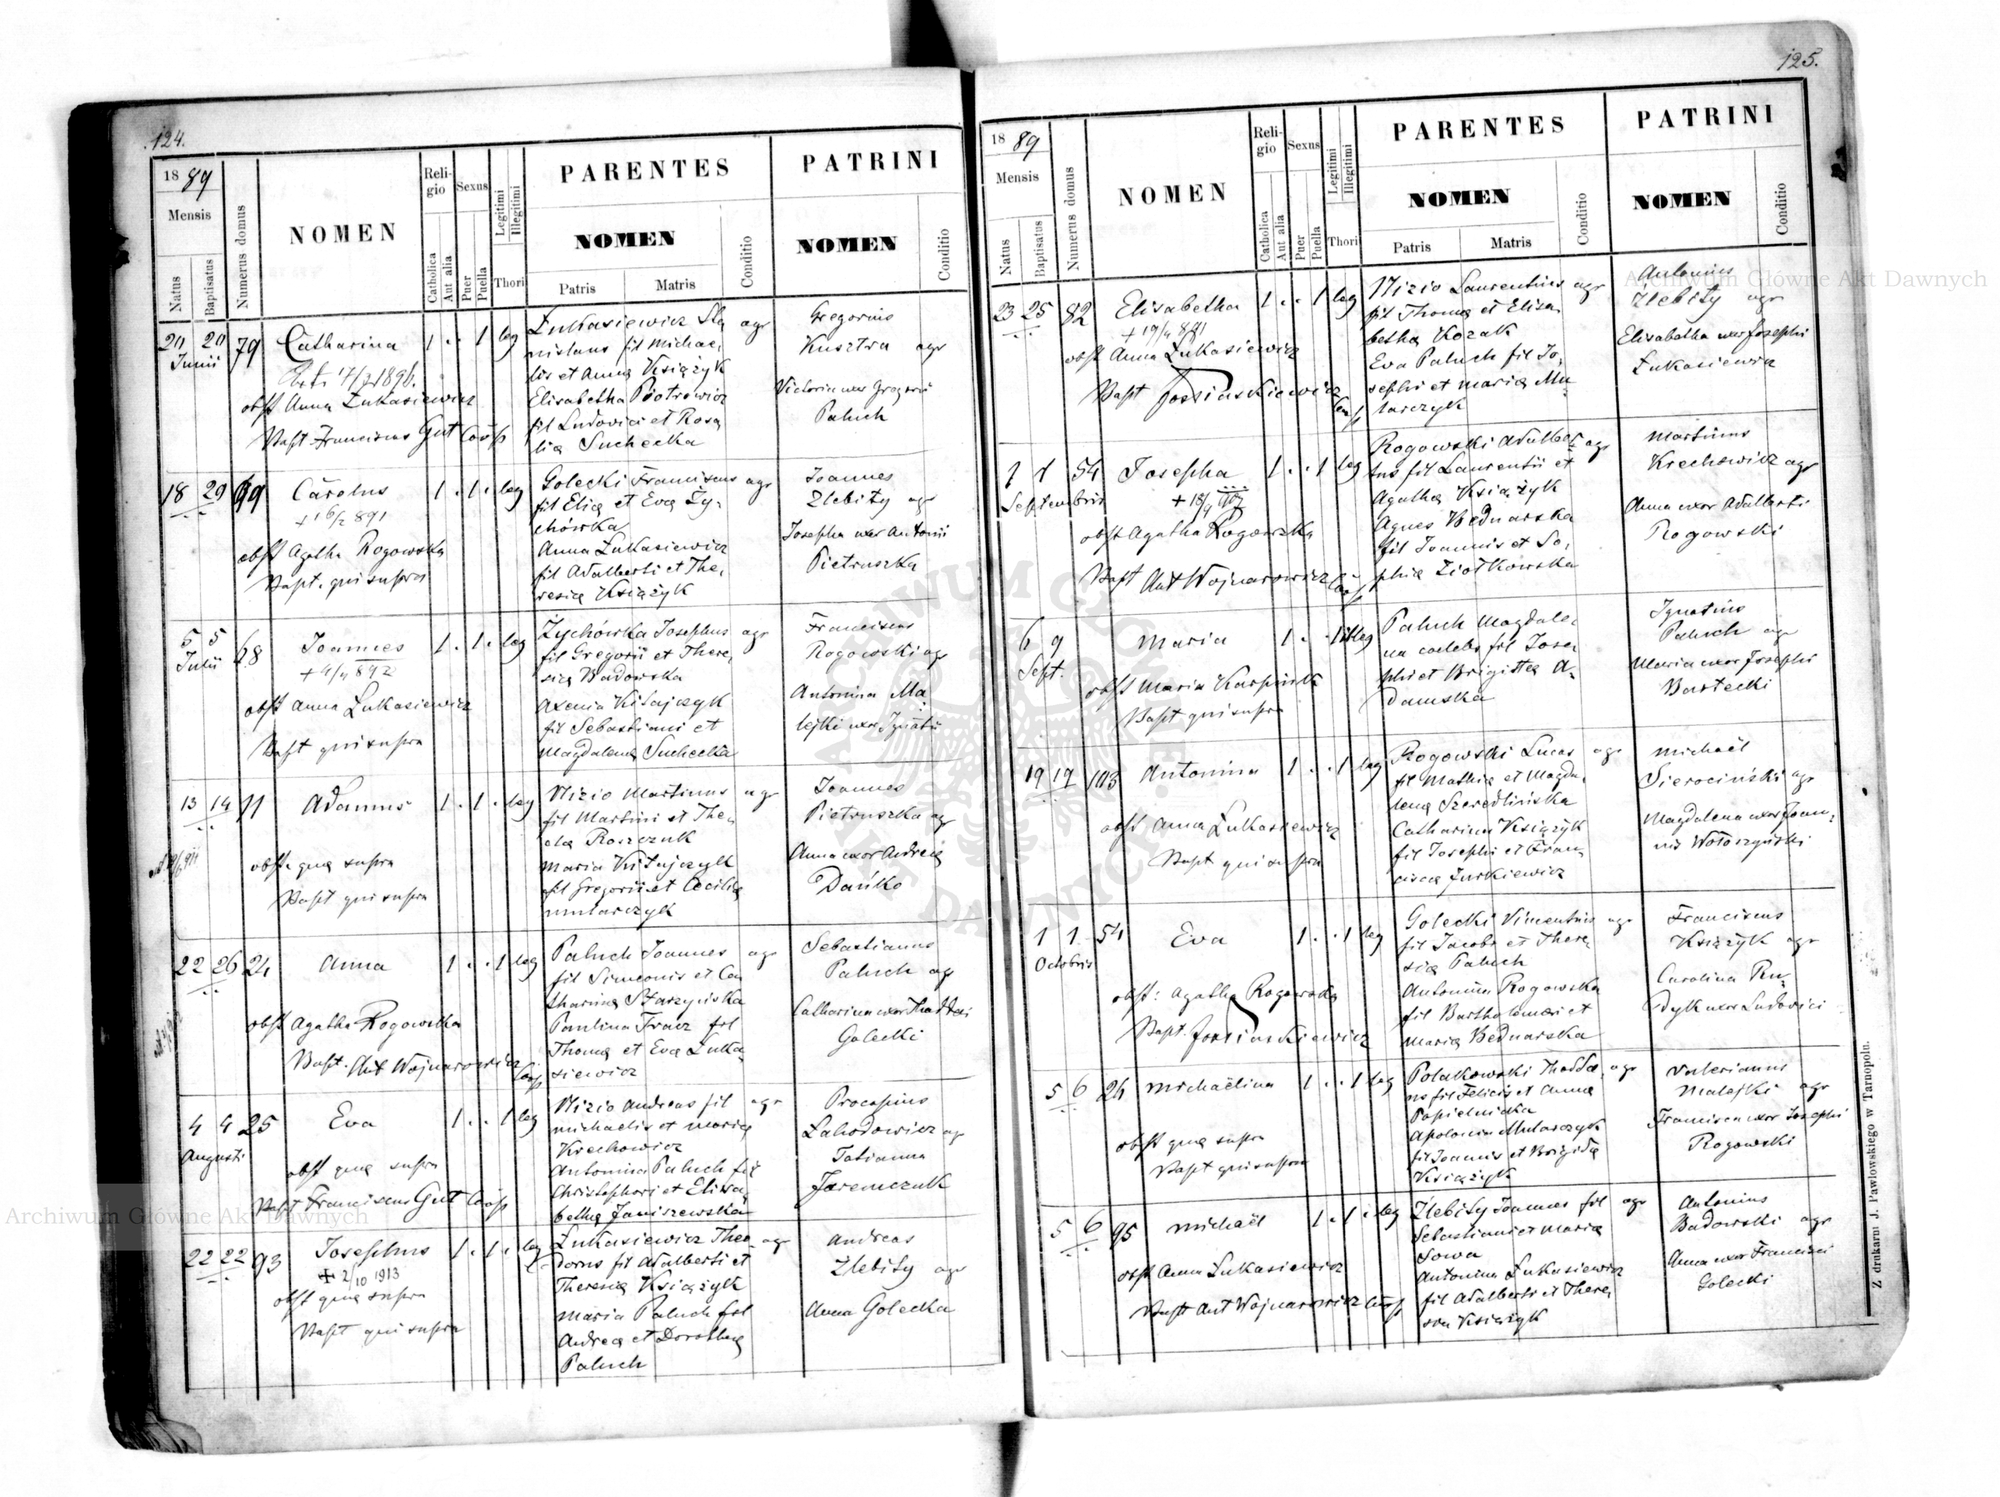 124.
18 89
Mensis
Natus
Baptisatus
Numerus domus
NOMEN
Religio
Catholica
Aut alia
Sexus
Puer
Puella
Legitimi
Illegitimi
Thori
PARENTES
NOMEN
Patris
Matris
Conditio
PATRINI
NOMEN
Conditio
20 20 79 Catharina 1 . . 1 leg
Junii
obst Anna Łukasiewicz
Bapt. Franciscus Gut Coop
Łukasiewicz Sta agr
nislaus fil Michae,
lis et Anna Książyk
Elisabetha Piotrowicz
fil Ludovici et Rosa
lia Suchecka
Gregorius
Kusztra agr
Victoria uxor Gregorii
Paluch
18 29 99 Carolus 1 . 1 . leg
+16/2 891
obst Agatha Rogowska
Bapt. qui supra
Golecki Franciscus agr
fil Elia et Eva Ży-
chówka
Anna Łukasiewicz
fil Adalberti et The,
resia Książyk
Joannes
Zlebity agr
Josepha uxor Antonii
Pietruszka
5 5 68 Joannes 1 . 1 . leg
Julii
+4/4 892
obst Anna Łukasiewicz
Bapt qui supra
Zychówka Josephus agr
fil Gregorii et There,
sia Badowska
Axenia Kitajczyk
fil Sebastiani et
Magdalena Suchecka
Franciscus
Rogowski agr
Antonina Ma
lejki uxor Ignatii
13 14 11 Adamus 1 . 1 . leg
obst. qua supra
Bapt qui supra
Nizio Martinus agr
fil Martini et The,
cla Roszczuk
Maria Kitajczyk
fil Gregorii et Cecilia
mularczyk
Joannes
Pietruszka agr
Anna uxor Andreia
Dańko
22 26 24 Anna 1 . . 1 leg
obst Agatha Rogowska
Bapt. Ant Wojnarowicz Coop
Paluch Joannes agr
fil Simeonis et Ca
tharina Starzyńska
Paulina Fracz fil
Thoma et Eva Łuka,
siewicz
Sebastianus
Paluch agr
Catharina uxor Thaddei
Golecki
4 4 25 Eva 1 . . 1 leg
Augusti
obst qua supra
Bapt Franciscus Gut Coop
Nizio Andreas fil agr
michaelis et maria
Krechowicz
Antonina Paluch fil
Christophori et Elisa,
betha Janiszewska
Procopius
Łahodowicz agr
Tatianna
Jaremczuk
22 22 93 Josephus 1 . 1 . leg
+ 2/10 1913
obst qua supra
Bapt qui supra
Łukasiewicz Theo agr
dorus fil Adalberti et
Theresia Książyk
Maria Paluch fil
Andrea et Dorothea
Paluch
Andreas
Zlebity agr
Anna Golecka
125.
18 89
Mensis
Natus
Baptisatus
Numerus domus
NOMEN
Religio
Catholica
Aut alia
Sexus
Puer
Puella
Legitimi
Illegitimi
Thori
PARENTES
NOMEN
Patris
Matris
Conditio
PATRINI
NOMEN
Conditio
23 25 82 Elisabetha 1 . . 1 leg
obst Anna Łukasiewicz
Bapt
Nizio Laurentius agr
fil Thoma et Elisa,
betha Kozak
Eva Paluch fil Jo,
sephi et maria Mu
larczyk
Antonius
Zlebity agr
Elisabetha uxor Josephi
Łukasiewicz
1 1 54 Josepha 1 . . 1 leg
Septembris
obst Agatha Rogowska
Bapt Ant Wojnarowicz Coop
Rogowski Adalber agr
tus fil Laurentii et
Agatha Książyk
Agnes Bednarska
fil Joannis et So,
phia Ziołkowska
Martinus
Krechowicz agr
Anna uxor Adalberti
Rogowski
6 9 Maria 1 . . 1 illeg
Sept.
obst Maria Karpińsk
Bapt qui supra
Paluch Magdale,
na caelebs fil Jose,
phi et Brigitta A,
damska
Ignatius
Paluch agr
Maria uxor Josephi
Bartecki
19 19 103 Antonina 1 . . 1 leg
obst Anna Łukasiewicz
Bapt qui supra
Rogowski Lucas agr
fil Mathia et Magda,
lena Szeredlińska
Catharina Książyk
fil Josephi et Fran,
cisca Jurkiewicz
Michaël
Sierociński agr
Magdalena uxor Joan,
nis Wołoszyński
1 1 54 Eva 1 . . 1 leg
Octobris
obst: Agatha Rogowska
Bapt.
Golecki Vincentius agr
fil Jacobi et There,
sia Paluch
Antonina Rogowska
fil Bartholomaei et
Maria Bednarska
Franciscus
Książyk agr
Carolina Pen,
dyk uxor Ludovici
5 6 24 Michaëlina 1 . . 1 leg
obst qua supra
Bapt qui supra
Polakowski Thadda, agr
us fil Felicis et Anna
Popielnicka
Apolonia Mularczyk
fil Joannis et Brigida
Książyk
Valerianus
Malejki agr
Francisca uxor Josephi
Rogowski
5 6 95 Michaël 1 . 1 . leg
obst Anna Łukasiewicz
Bapt Ant Wojnarowicz Coop
Zlebity Joannes fil agr
Sebastiani et Maria
Sowa
Antonina Łukasiewicz
fil Adalberti et There,
sia Książyk
Antonius
Badowski agr
Anna uxor Francisci
Golecki
Z drukarni J. Pawłowskiego w Tarnopolu.
Archiwum Główne Akt Dawnych
Archiwum Główne Akt Dawnych
ARCHIWUM GŁÓWNE AKT DAWNYCH